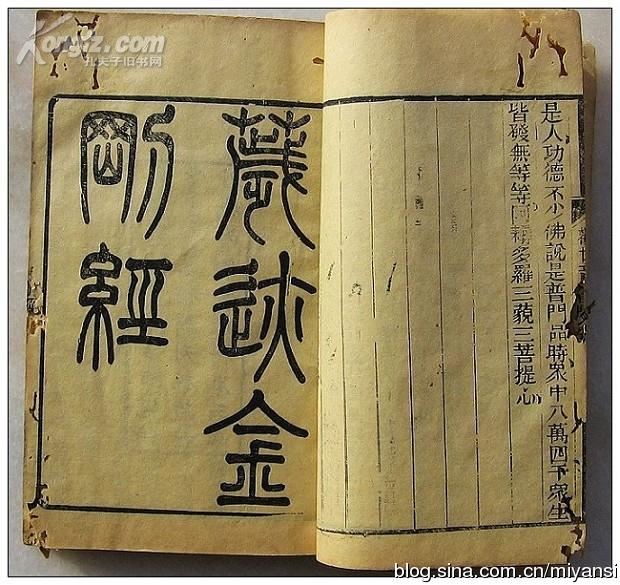 Kongfz.com
孔夫子旧书网
是人功德不少佛說是普門品時衆中八萬四千衆生
皆發無等等阿耨多羅三藐三菩提心
述金
剛經
blog.sina.com.cn/miyansi